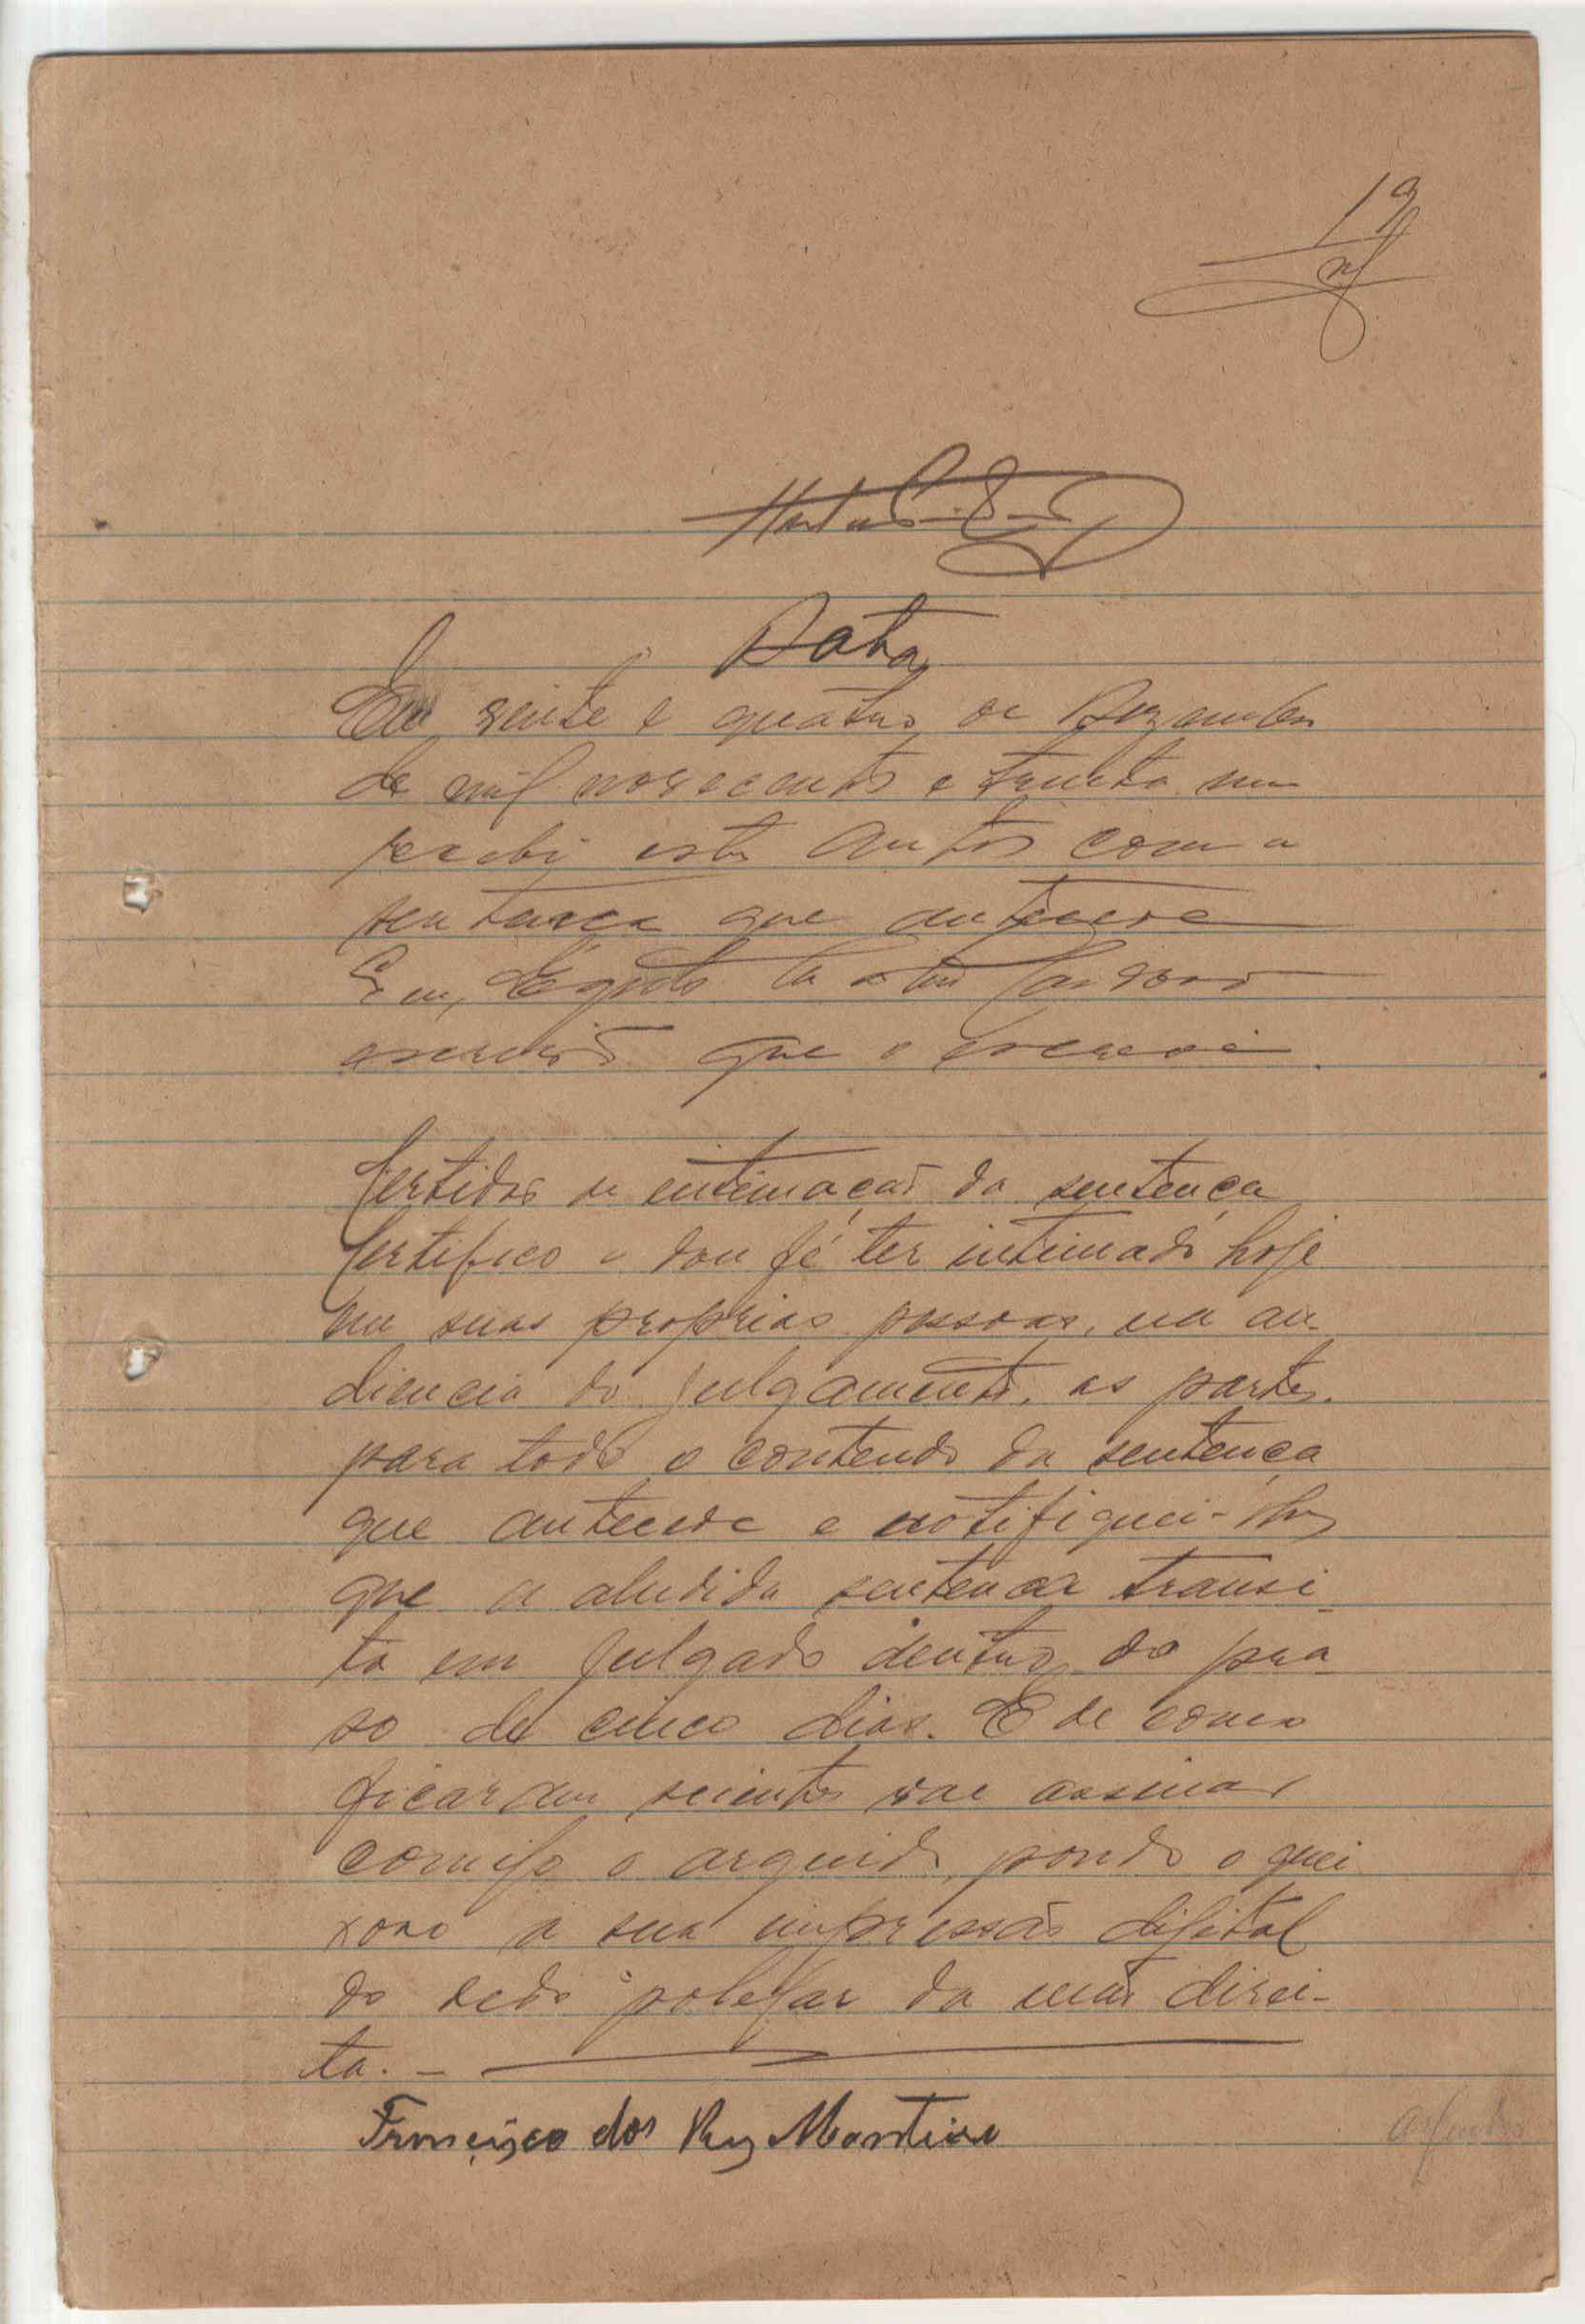 12
Data
Em vinte e quatro de Dezembro
de mil novecentos e trinta um
recebi estes autos com a
sentença que antecede
Eu,
escrivão que o escrevi.
Certidão de intimação da sentença
Certifico e dou fé ter intimado hoje
em suas proprias pessoas, na au-
diencia do julgamento, as partes,
para todo o conteudo da sentença
que antecede e notifiquei-lhes
que a aludida sentença transi-
ta em julgado dentro do pra-
so de cinco dias. E de como
ficaram scientes vae assinar
comigo o arguido, pondo o quei
xoso a sua impressão digital
do dedo polegar da mão direi-
ta. -
Francisco dos Reys Monteiro